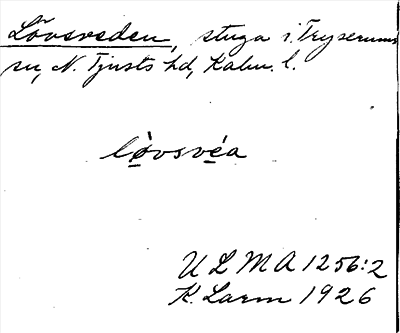 Lövsveden, stuga i Tryserums
sn, N. Tjusts hd, Kalm. l.
lòvsvéa
U L M A 1256:2
K. Larm 1926